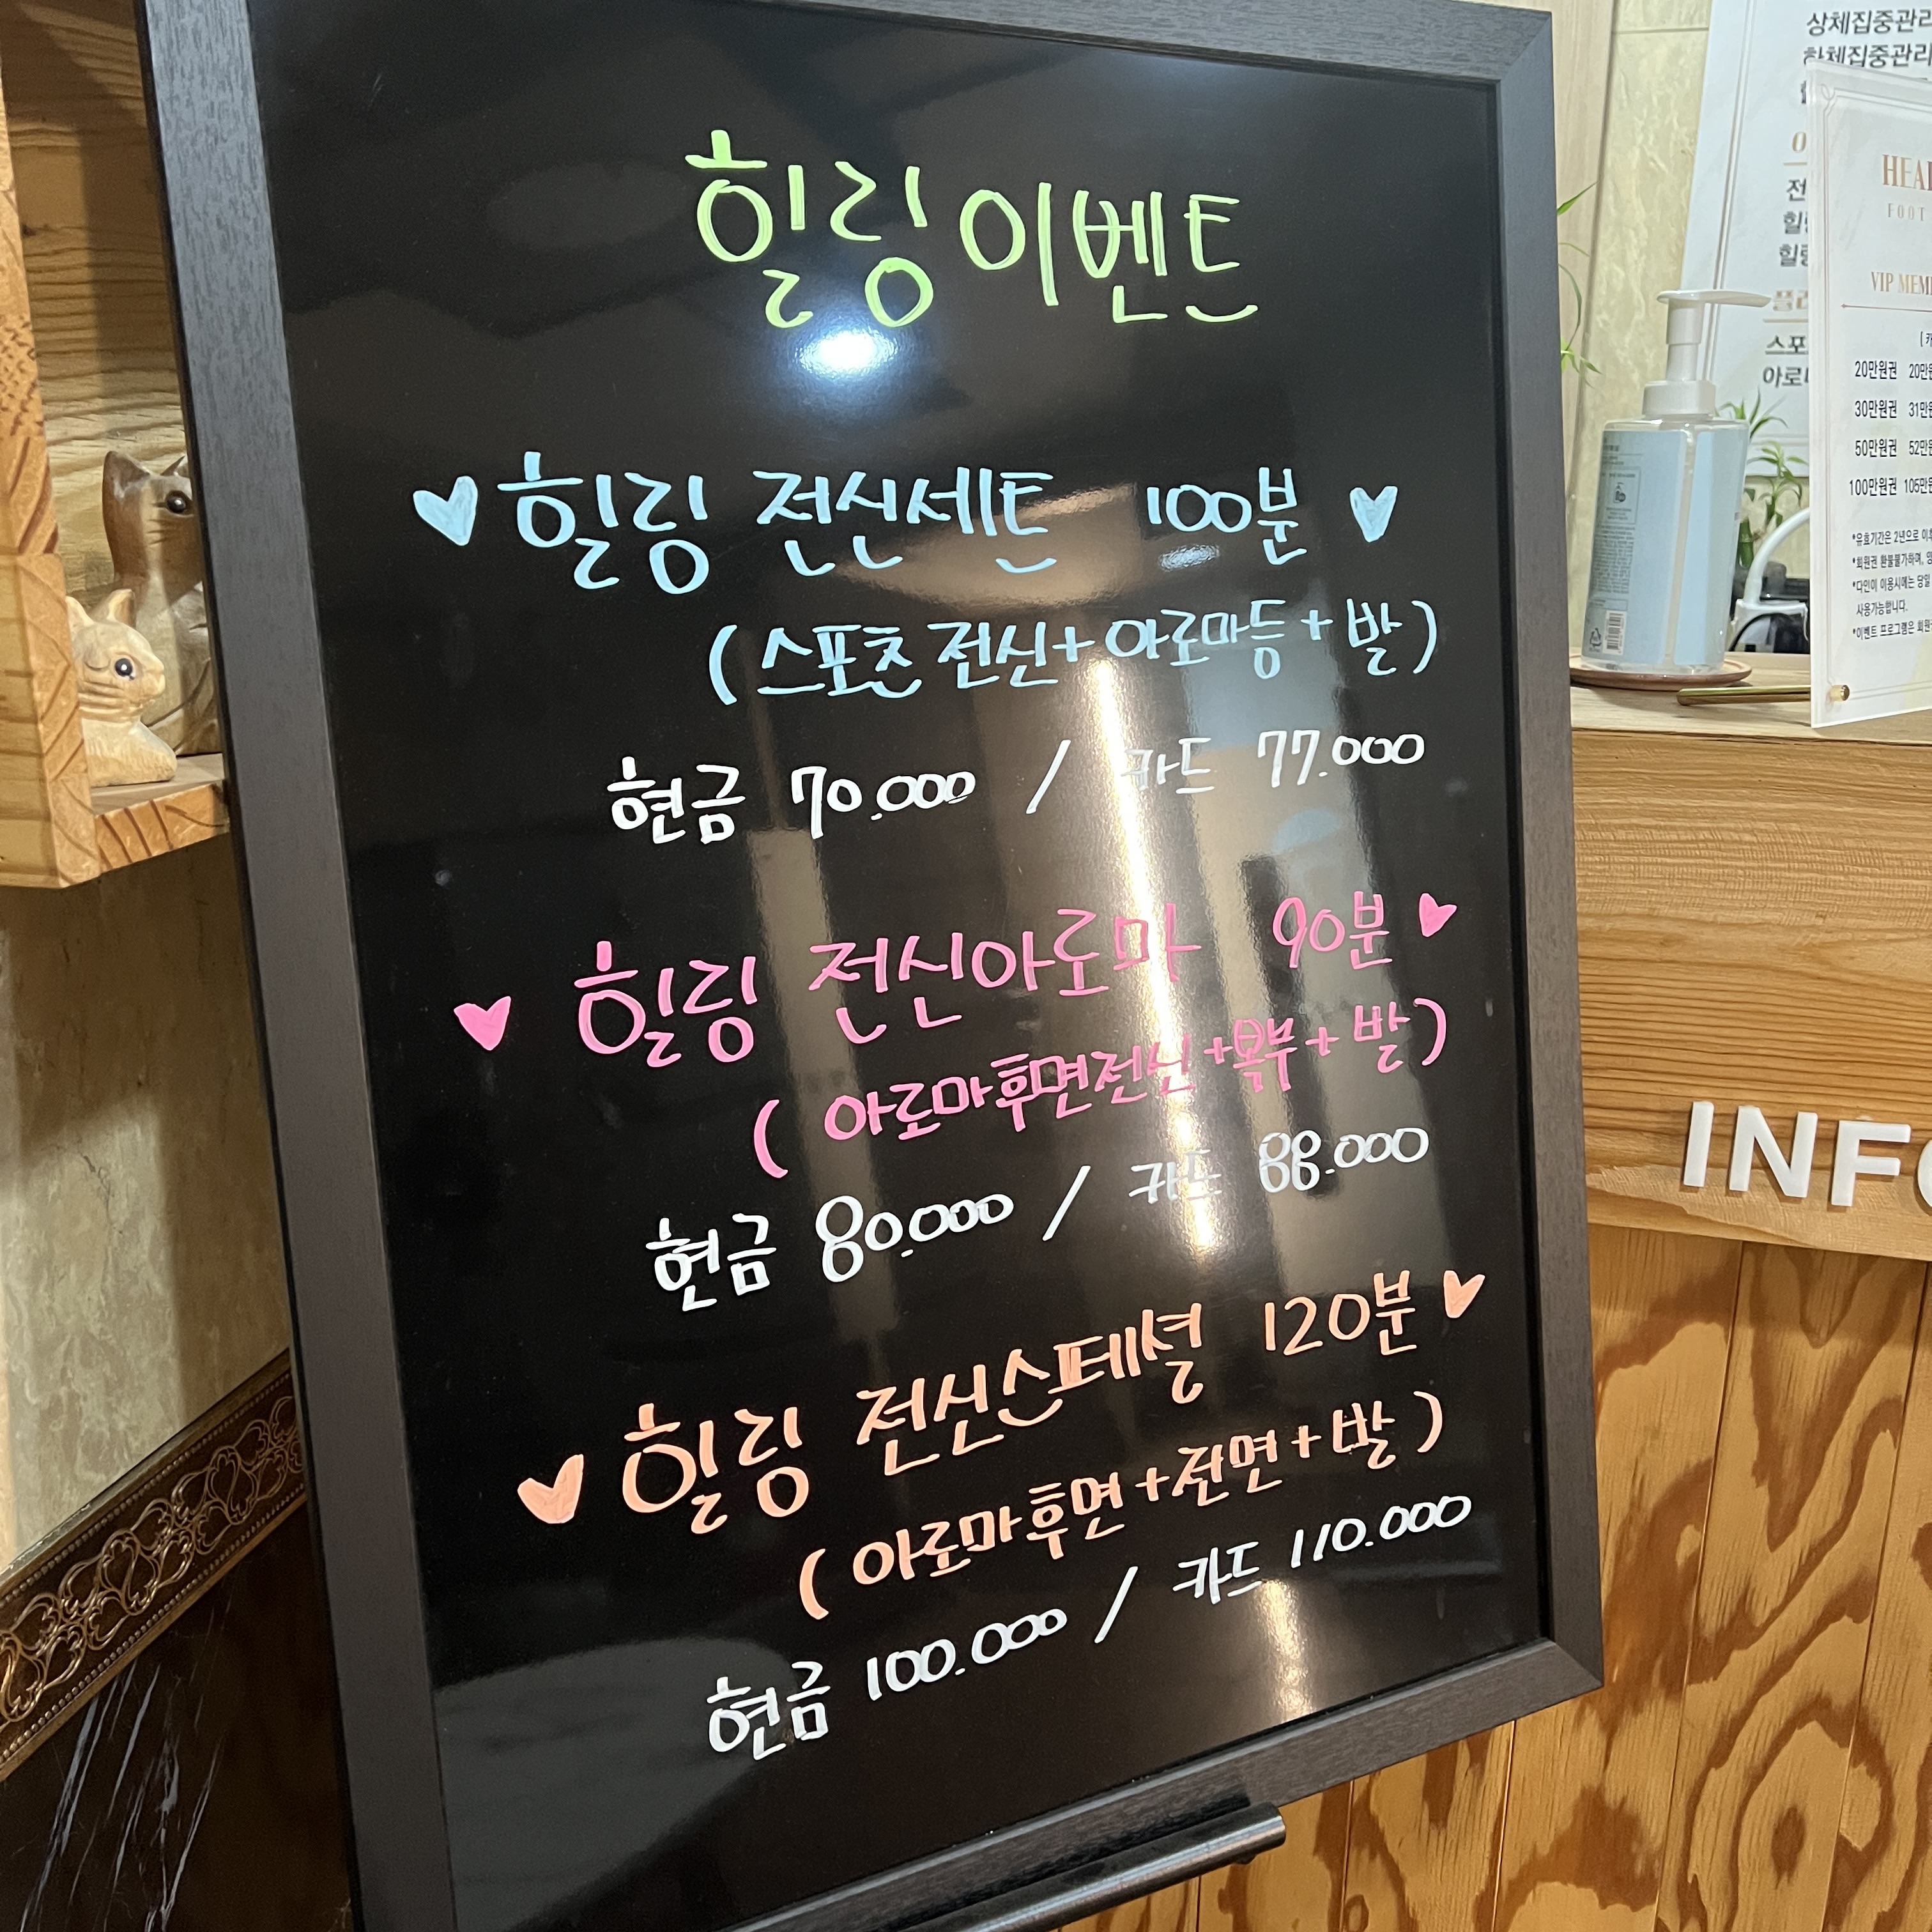 힐링이벤트
♥ 힐링 전신세트 100분 ♥
(스포츠전신+아로마등+발)
현금 70.000 / 카드 77.000
♥ 힐링 전신아로마 90분 ♥
(아로마후면전신+복부+발)
현금 80.000 / 카드 88.000
♥ 힐링 전신스페셜 120분 ♥
(아로마후면+전면+발)
현금 100.000 / 카드 110.000
상체집중관리
하체집중관리
FOOT
20만원권
30만원권 31만
50만원권 52만
100만원권 105만
사용가능합니다.